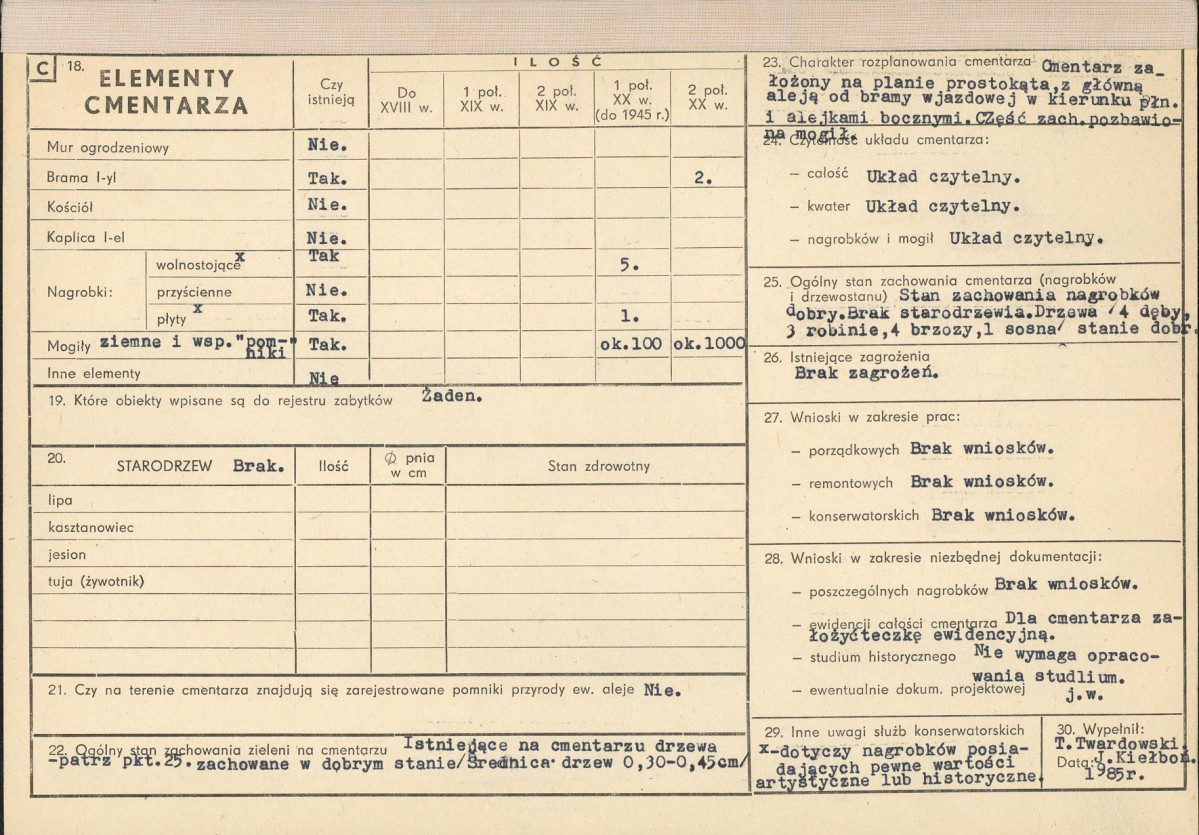 C 18. ELEMENTY CMENTARZA
Czy istnieją
ILOŚĆ
Do XVIII w.
1 poł. XIX w.
2 poł. XIX w.
1 poł. XX w. (do 1945 r.)
2 poł. XX w.
Mur ogrodzeniowy Nie.
Brama l-yl Tak. 2.
Kościół Nie.
Kaplica l-el Nie.
Nagrobki:
wolnostojące x Tak 5.
przyścienne Nie.
płyty x Tak. 1.
Mogiły ziemne i wsp."pom-"
niki
Tak. ok.100 ok.1000
Inne elementy Nie
19. Które obiekty wpisane są do rejestru zabytków Żaden.
20. STARODRZEW Brak. Ilość Ø pnia w cm Stan zdrowotny
lipa
kasztanowiec
jesion
tuja (żywotnik)
21. Czy na terenie cmentarza znajdują się zarejestrowane pomniki przyrody ew. aleje Nie.
22. Ogólny stan zachowania zieleni na cmentarzu Istniejące na cmentarzu drzewa
-patrz pkt.25. zachowane w dobrym stanie/Średnica drzew 0,30-0,45cm/
23. Charakter rozplanowania cmentarza Cmentarz za_
łożony na planie prostokąta,z główną
aleją od bramy wjazdowej w kierunku płn.
i alejkami bocznymi.CZęść zach.pozbawio-
na mogił.
24. Czytelność układu cmentarza:
– całość Układ czytelny.
– kwater Układ czytelny.
– nagrobków i mogił Układ czytelny.
25. Ogólny stan zachowania cmentarza (nagrobków
i drzewostanu) Stan zachowania nagrobków
dobry.Brak starodrzewia.Drzewa /4 dęby,
3 robinie,4 brzozy,1 sosna/ stanie dobr.
26. Istniejące zagrożenia
Brak zagrożeń.
27. Wnioski w zakresie prac:
– porządkowych Brak wniosków.
– remontowych Brak wniosków.
– konserwatorskich Brak wniosków.
28. Wnioski w zakresie niezbędnej dokumentacji:
– poszczególnych nagrobków Brak wniosków.
– ewidencji całości cmentarza Dla cmentarza za-
łożyćteczkę ewidencyjną.
– studium historycznego Nie wymaga opraco-
wania studlium.
– ewentualnie dokum. projektowej j.w.
29. Inne uwagi służb konserwatorskich
x-dotyczy nagrobków posia-
dających pewne wartości
artystyczne lub historyczne.
30. Wypełnił:
T.Twardowski
J.Kiełboń.
Data: 1985r.